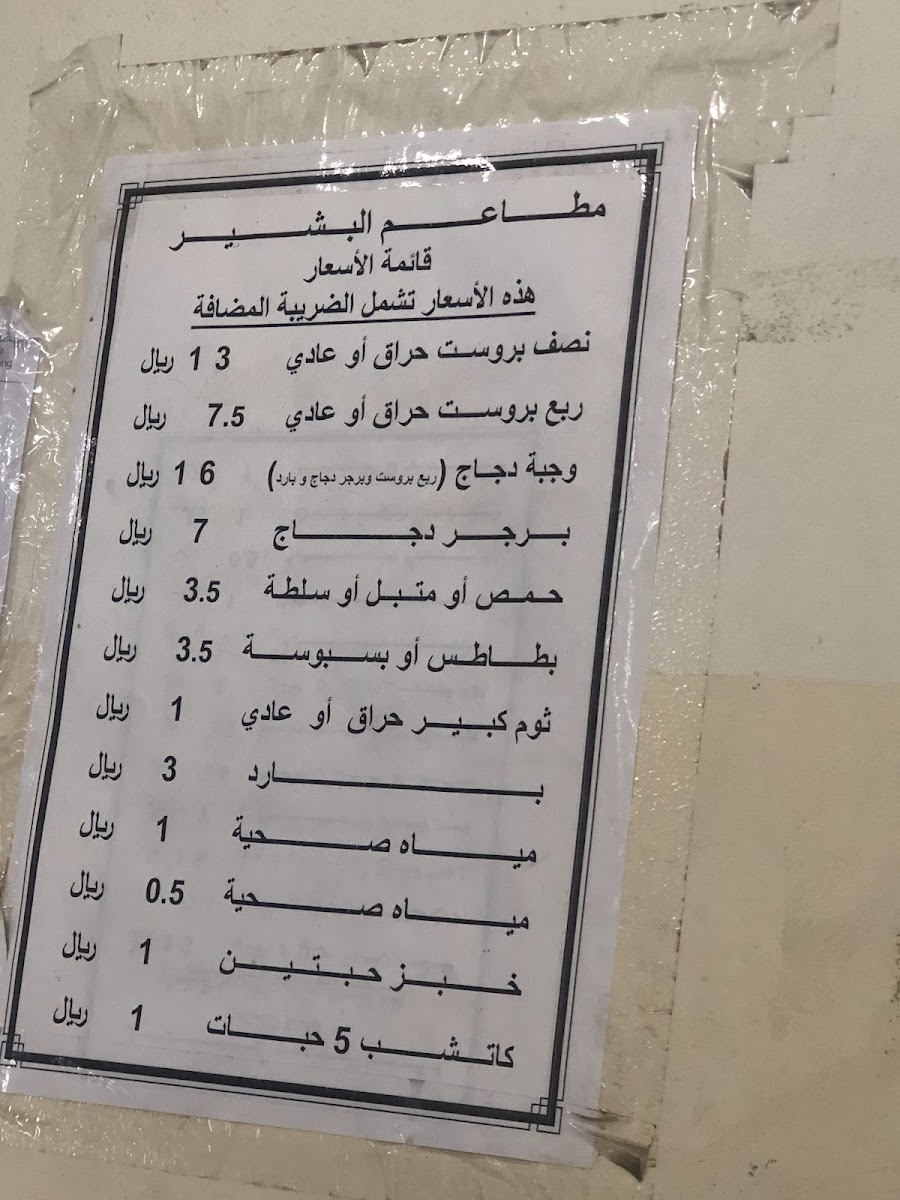 مطاعم البشير
قائمة الأسعار
هذه الأسعار تشمل الضريبة المضافة
نصف بروست حراق أو عادي 13 ريال
ربع بروست حراق أو عادي 7.5 ريال
وجبة دجاج (ربع بروست وبرجر دجاج و بارد) 16 ريال
برجر دجاج 7 ريال
حمص أو متبل أو سلطة 3.5 ريال
بطاطس أو بسبوسة 3.5 ريال
ثوم كبير حراق أو عادي 1 ريال
بارد 3 ريال
مياه صحية 1 ريال
مياه صحية 0.5 ريال
خبز حبتين 1 ريال
كاتشب 5 حبات 1 ريال